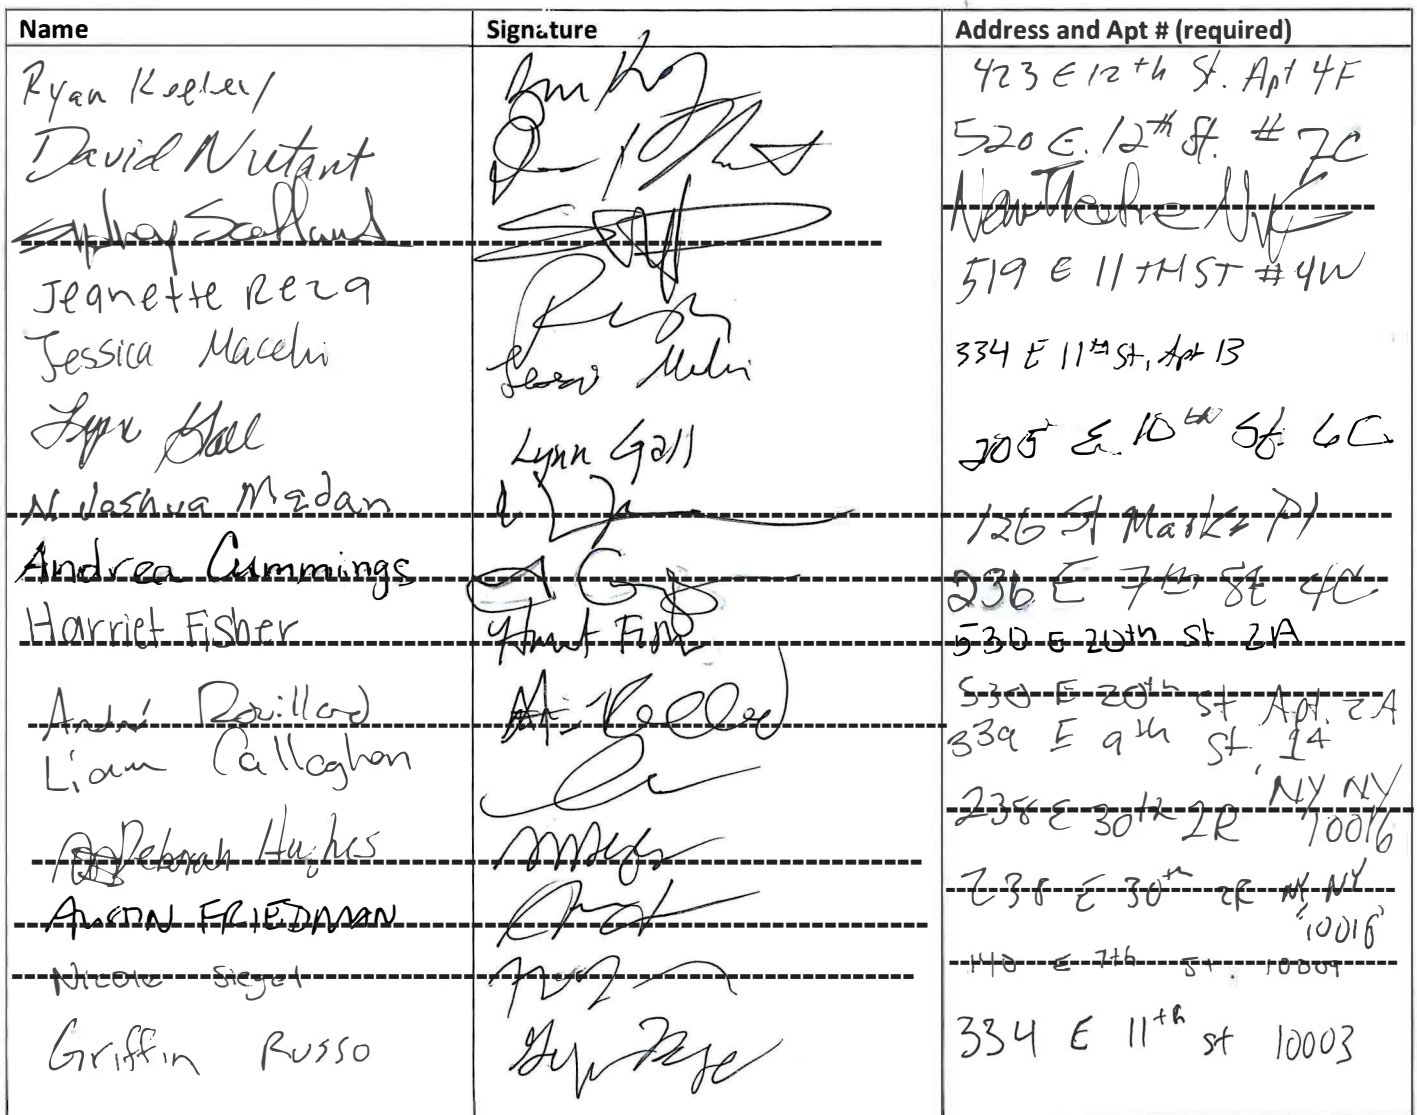 Name Signature Address and Apt # (required)
Ryan Keeley 423 E 12th St. Apt 4F
David Nutant 520 E. 12th St. # 7C
Sydney Scotland New Theatre NYC
Jeanette Reza 519 E 11TH ST # 4W
Jessica Macchi 334 E 11th St, Apt 13
Lynn Gall Lynn Gall 205 E. 10th St. 6C
N. Joshua Madan 126 St Marks Pl
Andrea Cummings 236 E 7th St 4C
Harriet Fisher 530 E 20th St 2A
André Rouillard 530 E 20th St Apt. 2A
Liam Callaghan 339 E 9th St.
Deborah Hughes 238 E 30th 2R NY NY 10016
AUSTIN FRIEDMAN 238 E 30th 2R NY NY 10016
Nicole Siegel 140 E 7th St. 10009
Griffin Russo 334 E 11th St 10003